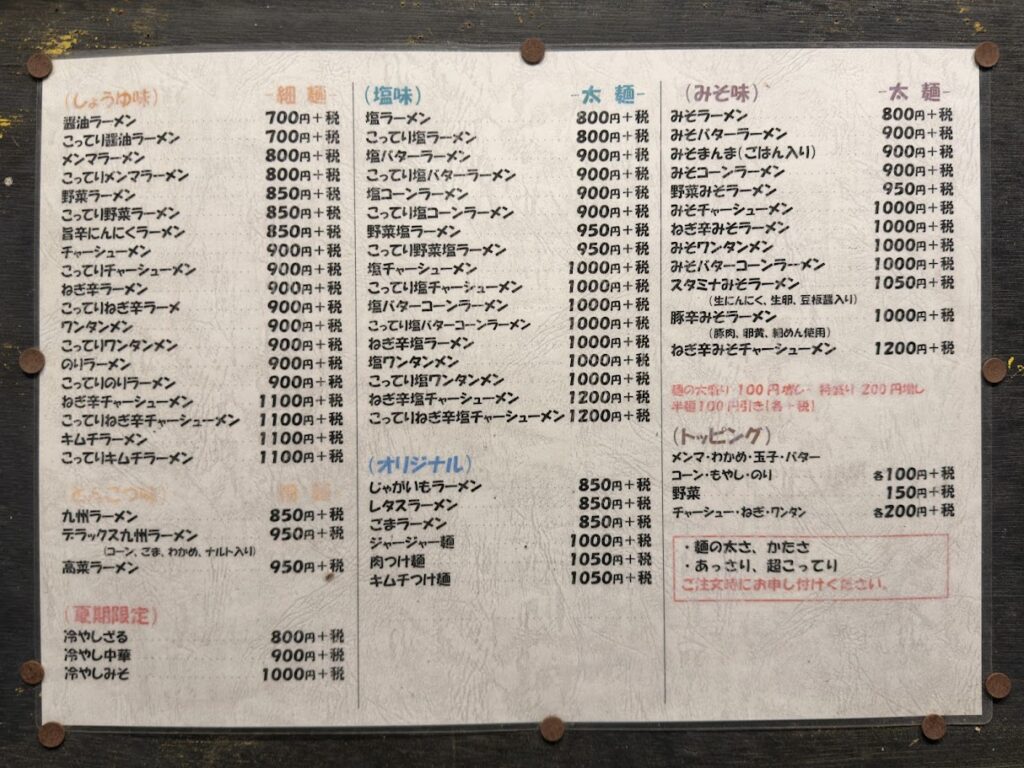 (しょうゆ味) -細麺-
醤油ラーメン 700円+税
こってり醤油ラーメン 700円+税
メンマラーメン 800円+税
こってりメンマラーメン 800円+税
野菜ラーメン 850円+税
こってり野菜ラーメン 850円+税
旨辛にんにくラーメン 850円+税
チャーシューメン 900円+税
こってりチャーシューメン 900円+税
ねぎ辛ラーメン 900円+税
こってりねぎ辛ラーメ 900円+税
ワンタンメン 900円+税
こってりワンタンメン 900円+税
のりラーメン 900円+税
こってりのりラーメン 900円+税
ねぎ辛チャーシューメン 1100円+税
こってりねぎ辛チャーシューメン 1100円+税
キムチラーメン 1100円+税
こってりキムチラーメン 1100円+税
(とんこつ味) -細麺-
九州ラーメン 850円+税
デラックス九州ラーメン 950円+税
(コーン、ごま、わかめ、ナルト入り)
高菜ラーメン 950円+税
(夏期限定)
冷やしざる 800円+税
冷やし中華 900円+税
冷やしみそ 1000円+税
(塩味) -太麺-
塩ラーメン 800円+税
こってり塩ラーメン 800円+税
塩バターラーメン 900円+税
こってり塩バターラーメン 900円+税
塩コーンラーメン 900円+税
こってり塩コーンラーメン 900円+税
野菜塩ラーメン 950円+税
こってり野菜塩ラーメン 950円+税
塩チャーシューメン 1000円+税
こってり塩チャーシューメン 1000円+税
塩バターコーンラーメン 1000円+税
こってり塩バターコーンラーメン 1000円+税
ねぎ辛塩ラーメン 1000円+税
塩ワンタンメン 1000円+税
こってり塩ワンタンメン 1000円+税
ねぎ辛塩チャーシューメン 1200円+税
こってりねぎ辛塩チャーシューメン 1200円+税
(オリジナル)
じゃがいもラーメン 850円+税
レタスラーメン 850円+税
ごまラーメン 850円+税
ジャージャー麺 1000円+税
肉つけ麺 1050円+税
キムチつけ麺 1050円+税
(みそ味) -太麺-
みそラーメン 800円+税
みそバターラーメン 900円+税
みそまんま(ごはん入り) 900円+税
みそコーンラーメン 900円+税
野菜みそラーメン 950円+税
みそチャーシューメン 1000円+税
ねぎ辛みそラーメン 1000円+税
みそワンタンメン 1000円+税
みそバターコーンラーメン 1000円+税
スタミナみそラーメン 1050円+税
(生にんにく、生卵、豆板醤入り)
豚辛みそラーメン 1000円+税
(豚肉、卵黄、細めん使用)
ねぎ辛みそチャーシューメン 1200円+税
麺の大盛り 100円増し 特盛り 200円増し
半麺100円引き(各+税)
(トッピング)
メンマ・わかめ・玉子・バター
コーン・もやし・のり 各100円+税
野菜 150円+税
チャーシュー・ねぎ・ワンタン 各200円+税
・麺の太さ、かたさ
・あっさり、超こってり
ご注文時にお申し付けください。